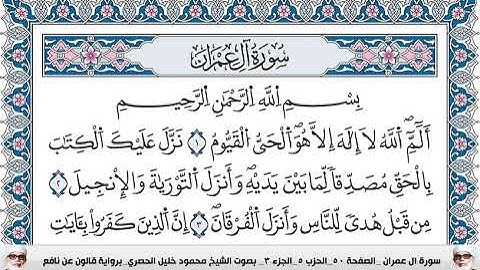 سُورَةُ آلِ عِمْرَانَ
بِسْمِ اِللَّهِ اِلرَّحْمَٰنِ اِلرَّحِيمِ
أَلَٓمِّٓۖ اَللَّهُ لَا إِلَٰهَ إِلَّا هُوَۖ اَلْحَىُّ اُلْقَيُّومُ ١ نَزَّلَ عَلَيْكَ اَلْكِتَٰبَ
بِالْحَقِّ مُصَدِّقاٗ لِّمَا بَيْنَ يَدَيْهِۖ وَأَنزَلَ اَلتَّوْرَىٰةَ وَالْإِنجِيلَ ٢
مِن قَبْلُ هُدىٗ لِّلنَّاسِ وَأَنزَلَ اَلْفُرْقَانَۖ ٣ إِنَّ اَلذِينَ كَفَرُواْ بِـَٔايَٰتِ
سورة ال عمران _الصفحة ٥٠_الحزب ٥_الجزء ٣_ بصوت الشيخ محمود خليل الحصري_برواية قالون عن نافع